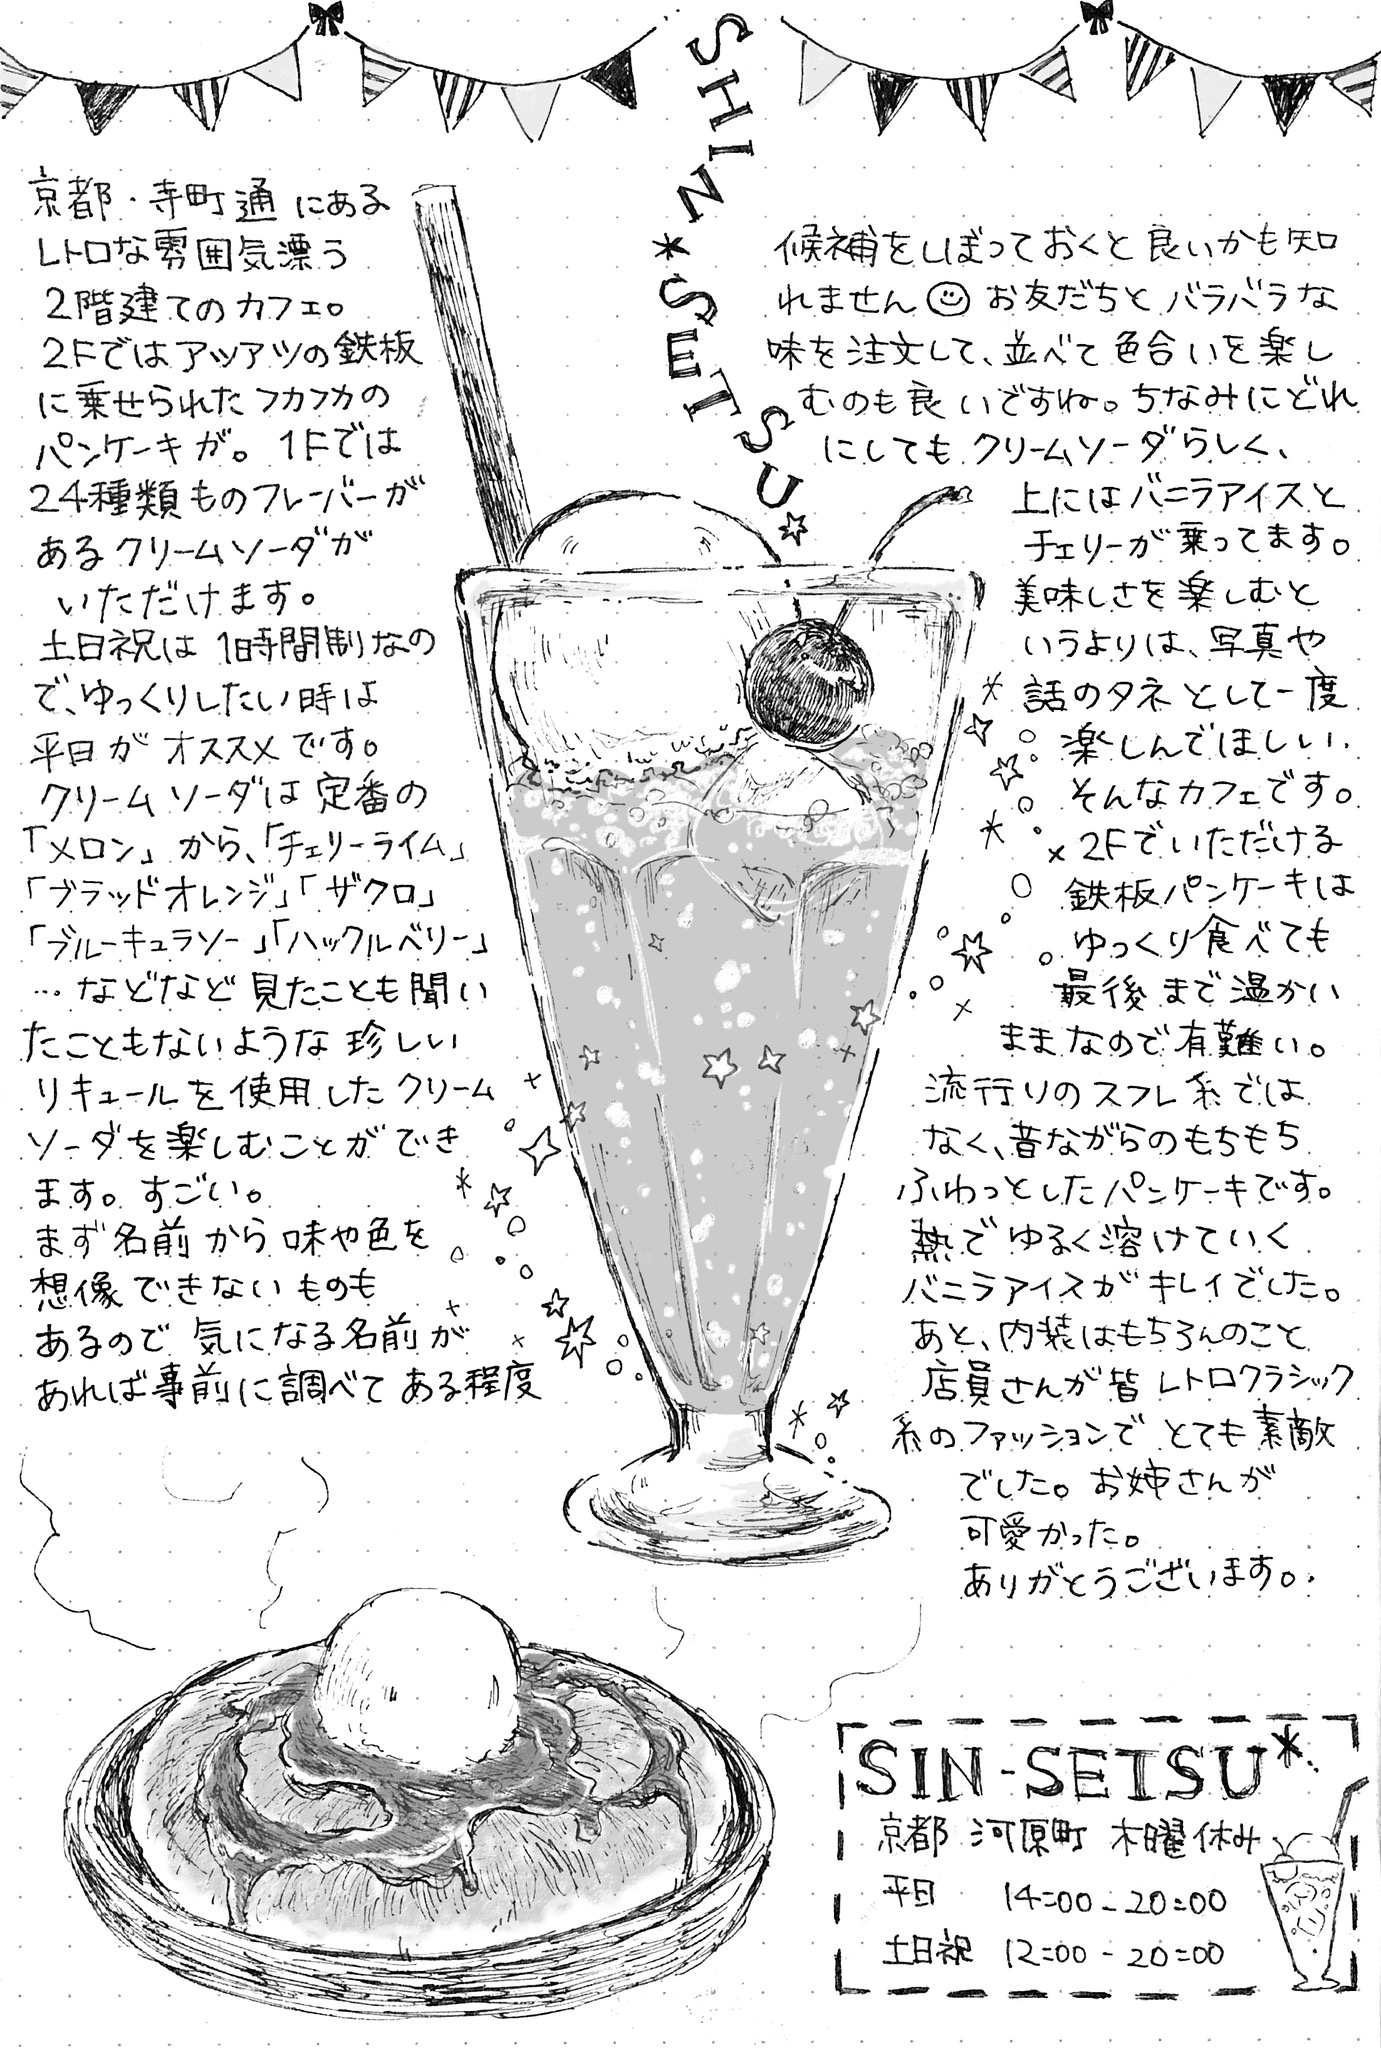 SHIN*SETSU☆
京都・寺町通にある
レトロな雰囲気漂う
2階建てのカフェ。
2Fではアツアツの鉄板
に乗せられたフカフカの
パンケーキが。1Fでは
24種類ものフレーバーが
あるクリームソーダが
いただけます。
土日祝は1時間制なの
で、ゆっくりしたい時は
平日がオススメです。
クリームソーダは定番の
「メロン」から、「チェリーライム」
「ブラッドオレンジ」「ザクロ」
「ブルーキュラソー」「ハックルベリー」
…などなど見たことも聞い
たこともないような珍しい
リキュールを使用したクリーム
ソーダを楽しむことができ
ます。すごい。
まず名前から味や色を
想像できないものも
あるので気になる名前が
あれば事前に調べてある程度
候補をしぼっておくと良いかも知
れません☺お友だちとバラバラな
味を注文して、並べて色合いを楽し
むのも良いですね。ちなみにどれ
にしてもクリームソーダらしく、
上にはバニラアイスと
チェリーが乗ってます。
美味しさを楽しむと
いうよりは、写真や
話のタネとして一度
楽しんでほしい、
そんなカフェです。
2Fでいただける
鉄板パンケーキは
ゆっくり食べても
最後まで温かい
ままなので有難い。
流行りのスフレ系では
なく、昔ながらのもちもち
ふわっとしたパンケーキです。
熱でゆるく溶けていく
バニラアイスがキレイでした。
あと、内装はもちろんのこと
店員さんが皆レトロクラシック
系のファッションでとても素敵
でした。お姉さんが
可愛かった。
ありがとうございます。
SIN-SETSU*
京都 河原町 木曜休み
平日 14:00-20:00
土日祝 12:00-20:00